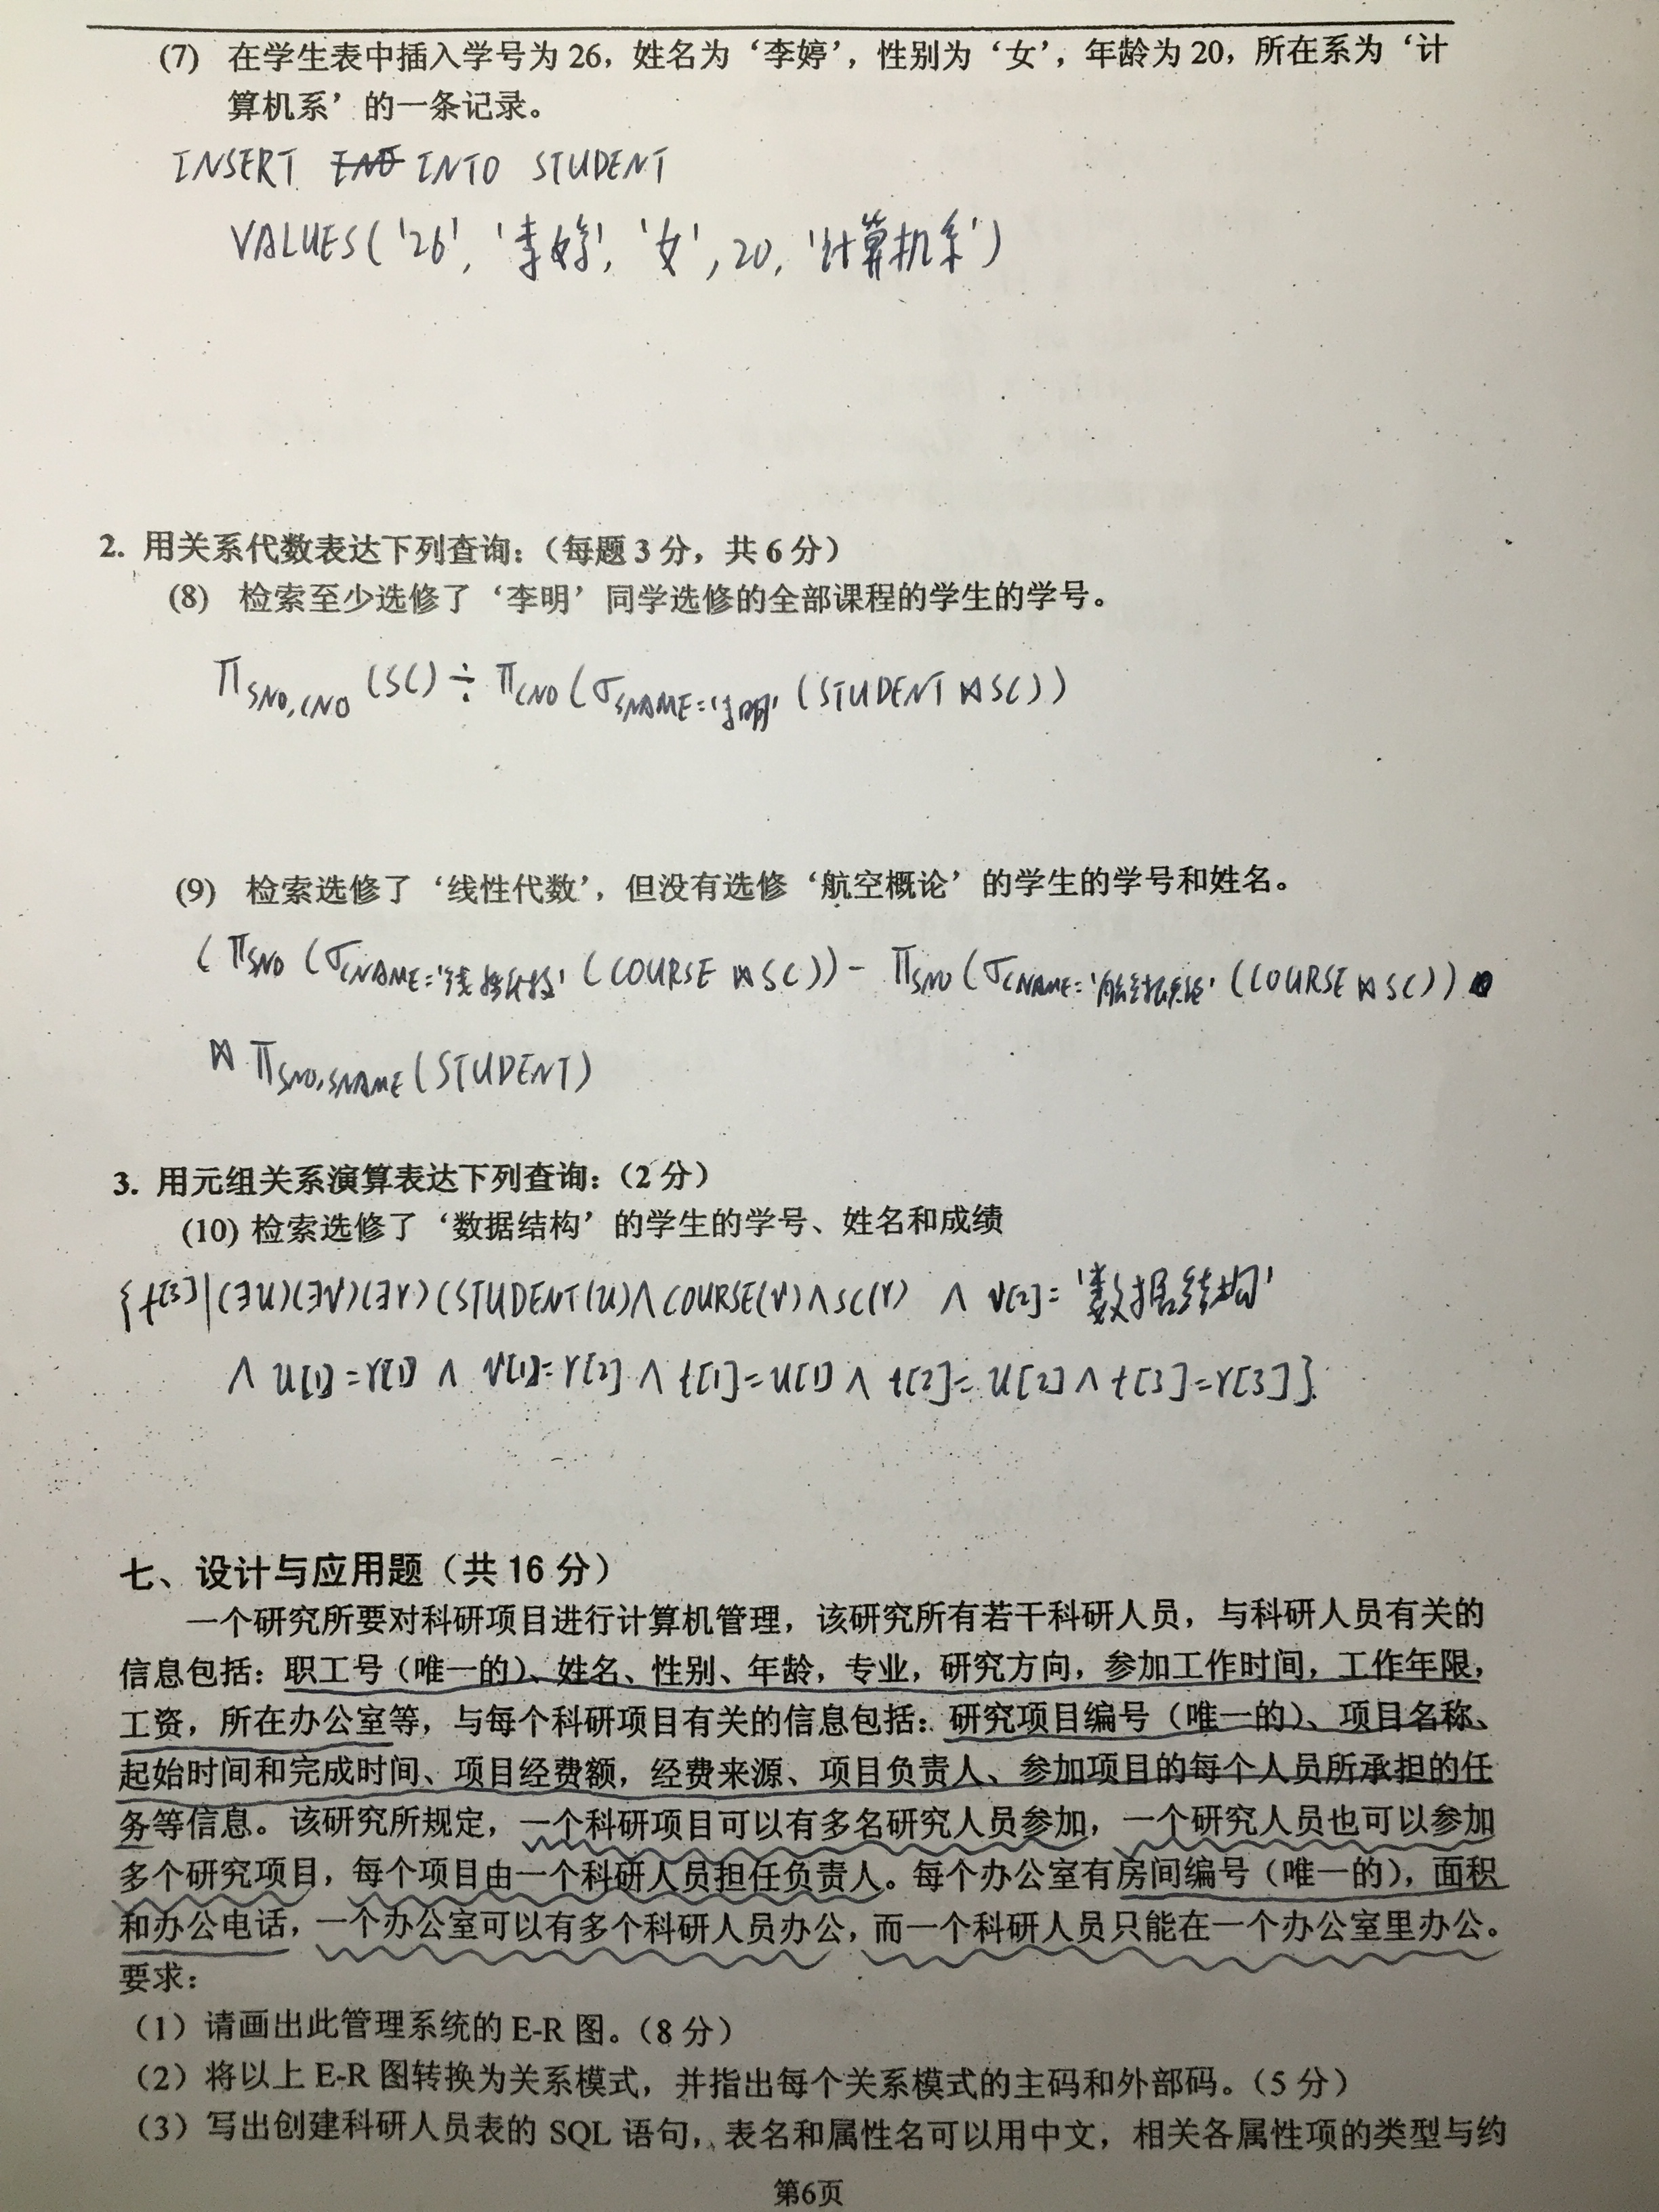 (7) 在学生表中插入学号为 26，姓名为‘李婷’，性别为‘女’，年龄为 20，所在系为‘计
算机系’的一条记录。
INSERT INTO STUDENT
VALUES('26', '李婷', '女', 20, '计算机系')
2. 用关系代数表达下列查询：（每题 3 分，共 6 分）
(8) 检索至少选修了‘李明’同学选修的全部课程的学生的学号。
π SNO,CNO (SC) ÷ π CNO (σ SNAME='李明' (STUDENT ⋈ SC))
(9) 检索选修了‘线性代数’，但没有选修‘航空概论’的学生的学号和姓名。
( π SNO (σ CNAME='线性代数' (COURSE ⋈ SC)) - π SNO (σ CNAME='航空概论' (COURSE ⋈ SC))
⋈ π SNO,SNAME (STUDENT)
3. 用元组关系演算表达下列查询：（2 分）
(10) 检索选修了‘数据结构’的学生的学号、姓名和成绩
{t[3]|(∃u)(∃v)(∃r)(STUDENT(u)∧COURSE(v)∧SC(r) ∧ v[2]='数据结构'
∧ u[1]=r[1] ∧ v[1]=r[2] ∧ t[1]=u[1] ∧ t[2]=u[2] ∧ t[3]=r[3]}
七、设计与应用题（共 16 分）
一个研究所要对科研项目进行计算机管理，该研究所有若干科研人员，与科研人员有关的
信息包括：职工号（唯一的）、姓名、性别、年龄，专业，研究方向，参加工作时间，工作年限，
工资，所在办公室等，与每个科研项目有关的信息包括：研究项目编号（唯一的）、项目名称、
起始时间和完成时间、项目经费额，经费来源、项目负责人、参加项目的每个人员所承担的任
务等信息。该研究所规定，一个科研项目可以有多名研究人员参加，一个研究人员也可以参加
多个研究项目，每个项目由一个科研人员担任负责人。每个办公室有房间编号（唯一的），面积
和办公电话，一个办公室可以有多个科研人员办公，而一个科研人员只能在一个办公室里办公。
要求：
（1）请画出此管理系统的 E-R 图。（8 分）
（2）将以上 E-R 图转换为关系模式，并指出每个关系模式的主码和外部码。（5 分）
（3）写出创建科研人员表的 SQL 语句，表名和属性名可以用中文，相关各属性项的类型与约
第6页